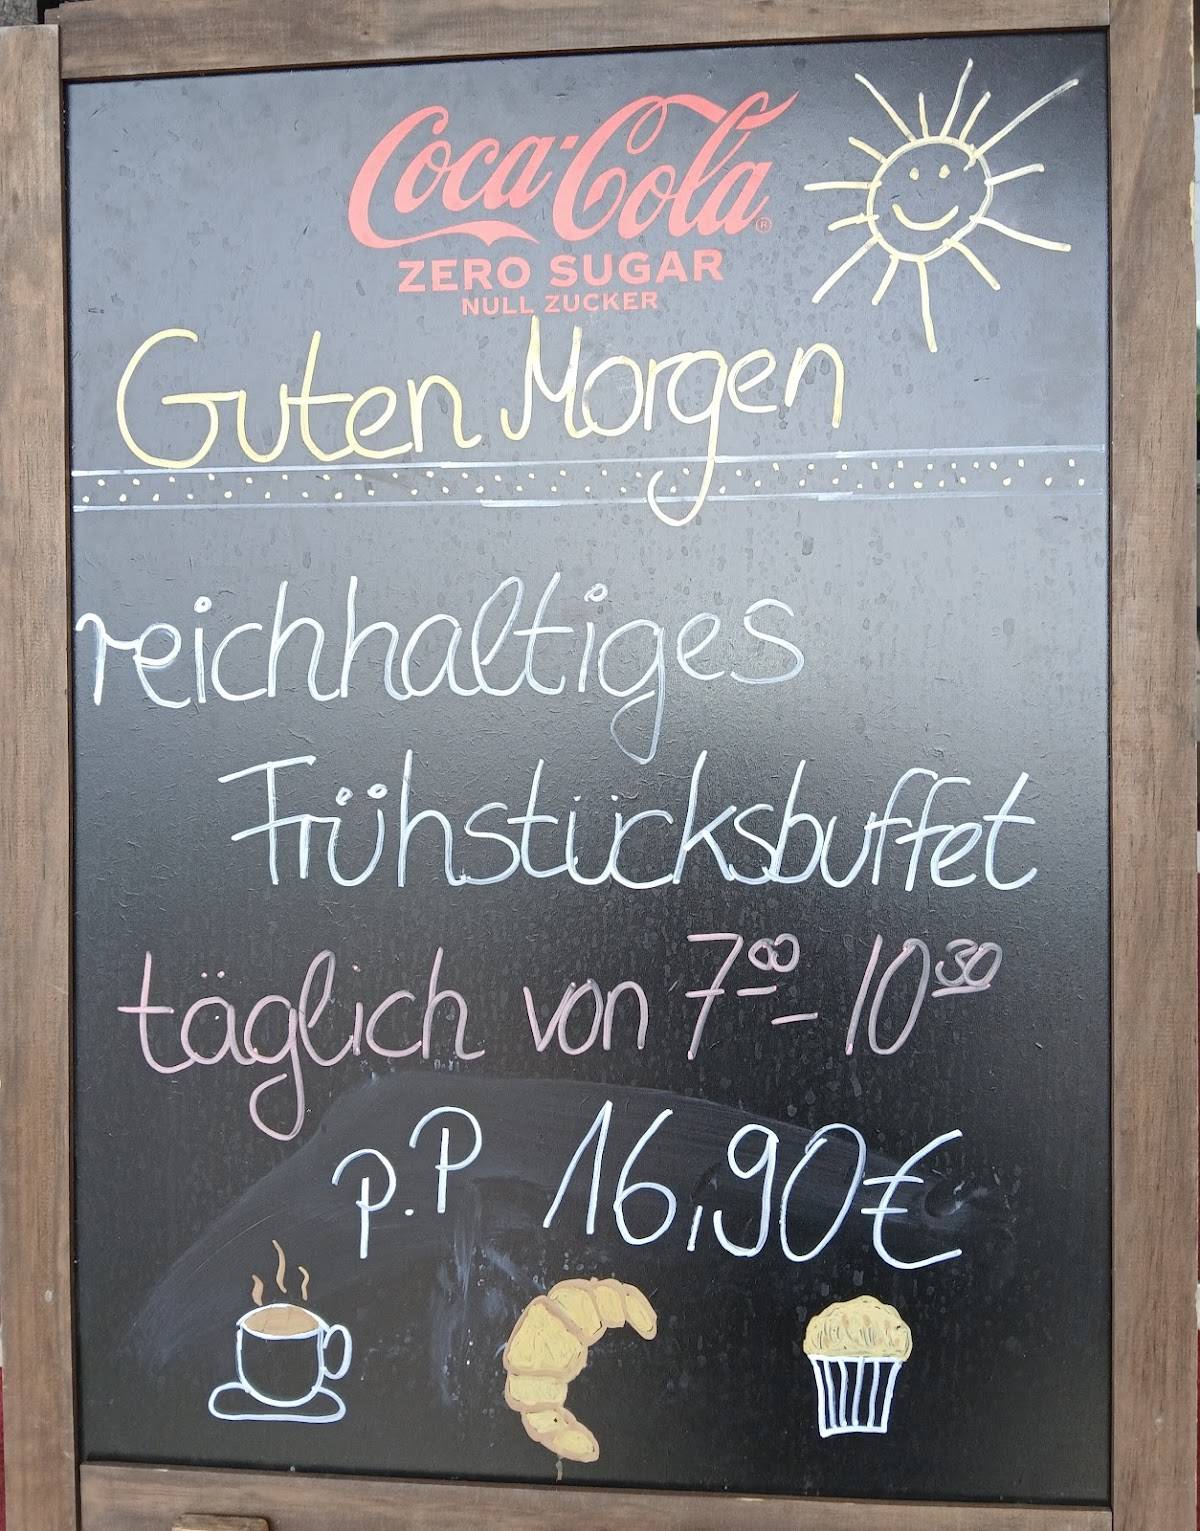 Coca-Cola®
ZERO SUGAR
NULL ZUCKER
Guten Morgen
reichhaltiges
Frühstücksbuffet
täglich von 7⁰⁰ - 10³⁰
p.P 16,90€